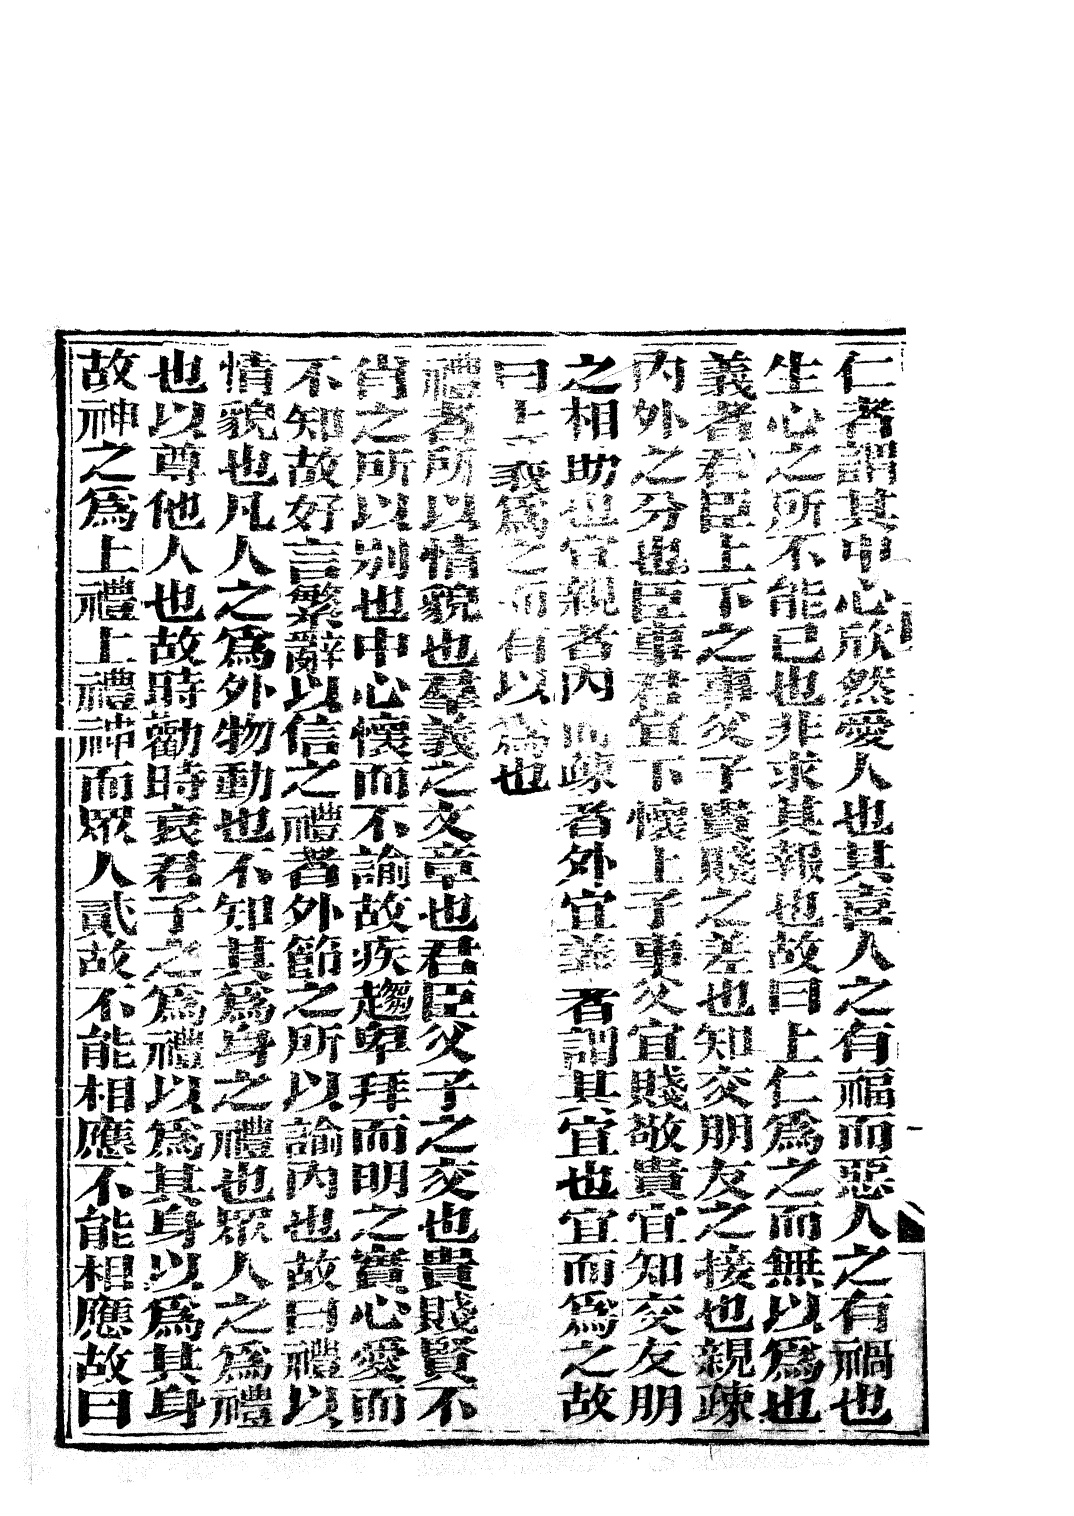 仁者謂其中心欣然愛人也其喜人之有福而惡人之有禍也
生心之所不能已也非求其報也故曰上仁爲之而無以爲也
義者君臣上下之事父子貴賤之差也知交朋友之接也親疎
內外之分也臣事君宜下懷上子事父宜賤敬貴宜知交友朋
之相助也宜親者內而疎者外宜義者謂其宜也宜而爲之故
曰上義爲之而有以爲也
禮者所以情貌也羣義之文章也君臣父子之交也貴賤賢不
肖之所以別也中心懷而不諭故疾趨卑拜而明之實心愛而
不知故好言繁辭以信之禮者外節之所以諭內也故曰禮以
情貌也凡人之爲外物動也不知其爲身之禮也眾人之爲禮
也以尊他人也故時勸時衰君子之爲禮以爲其身以爲其身
故神之爲上禮上禮神而眾人貳故不能相應不能相應故曰